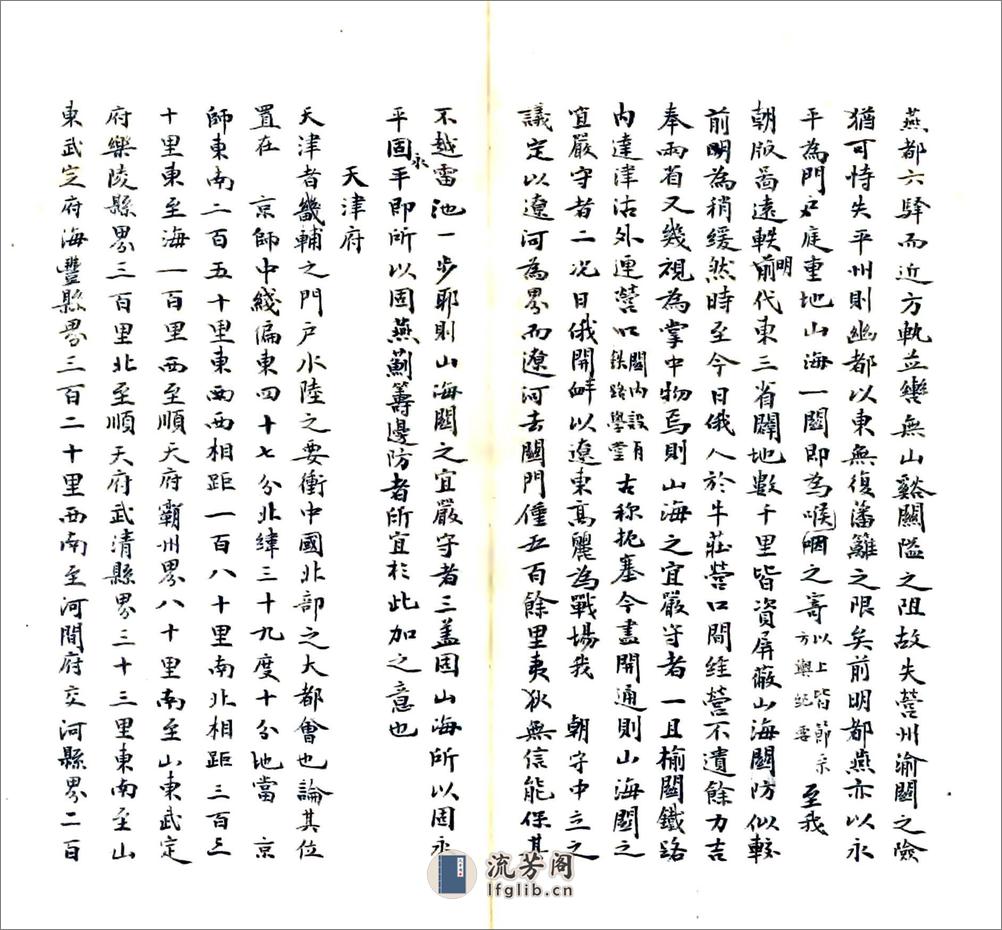 燕都六驛而近方軌並轡無山谿關隘之阻故失營州渝關之險
猶可恃失平州則幽都以東無復藩籬之限矣前明都燕亦以永
平為門戶庭重地山海一關即為喉咽之寄以上皆節录方輿纪要 至我
朝版啚遠軼前明代東三省闢地數千里皆資屏蔽山海關防似較
前明為稍緩然時至今日俄人於牛莊營口間經營不遺餘力吉
奉兩省又幾視為掌中物焉則山海之宜嚴守者一且榆關鐵路
內達津沽外連營口關內設有鉄路學堂古称扼塞今盡開通則山海關之
宜嚴守者二况日俄開衅以遼東高麗為戰場我 朝守中立之
議定以遼河為界而遼河去關門僅五百餘里夷狄無信能保其
不越雷池一步耶則山海關之宜嚴守者三盖固山海所以固永
平固永平即所以固燕薊籌邊防者所宜於此加之意也
天津府
天津者畿輔之門户水陸之要衝中國北部之大都會也論其位
置在 京師中綫偏東四十七分北緯三十九度十分地當 京
師東南二百五十里東西西相距一百八十里南北相距三百三
十里東至海一百里西至順天府霸州界八十里南至山東武定
府樂陵縣界三百里北至順天府武清縣界三十三里東南至山
東武定府海豐縣界三百二十里西南至河間府交河縣界二百
流芳阁
lfglib.cn